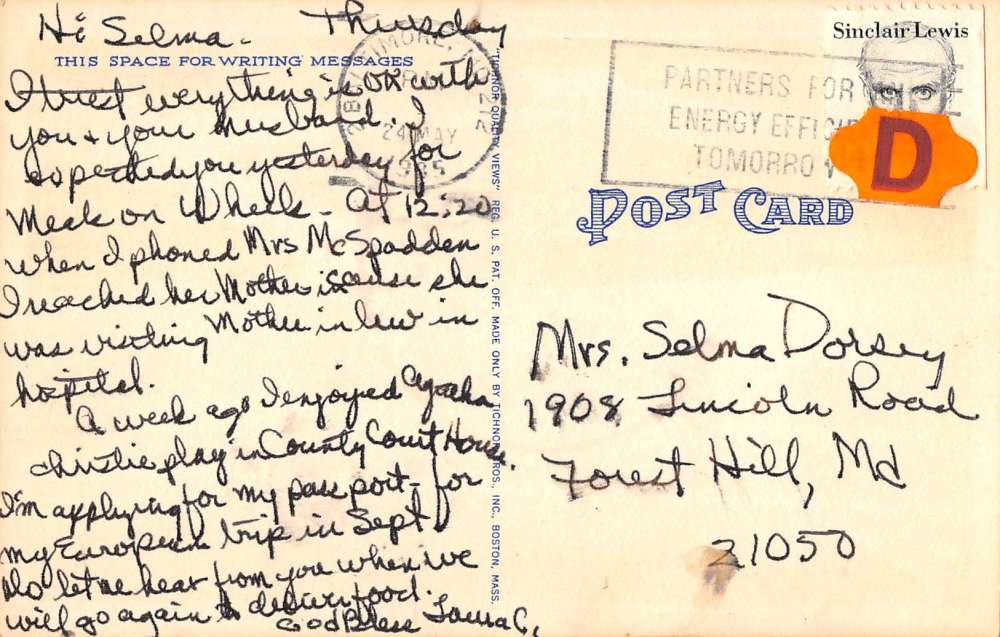 Hi Selma - Thursday
THIS SPACE FOR WRITING MESSAGES
I trust everything is OK with
you + your husband. I
expected you yesterday for
Meals on Wheels - At 12:20
when I phoned Mrs McSpadden
I reached her Mother she
was visiting Mother in law in
hospital.
A week ago I enjoyed Agatha
Christie play in County Court House.
I'm applying for my passport - for
my European trip in Sept.
Do let me hear from you when we
will go again to deliver food.
God Bless Laura C.
"TICHNOR QUALITY VIEWS" REG. U. S. PAT. OFF. MADE ONLY BY TICHNOR BROS., INC., BOSTON, MASS.
BALTIMORE, MD 212
PM
24 MAY
1985
PARTNERS FOR
ENERGY EFFICIE
TOMORROW
Sinclair Lewis
D
POST CARD
Mrs. Selma Dorsey
1908 Lincoln Road
Forest Hill, Md
21050